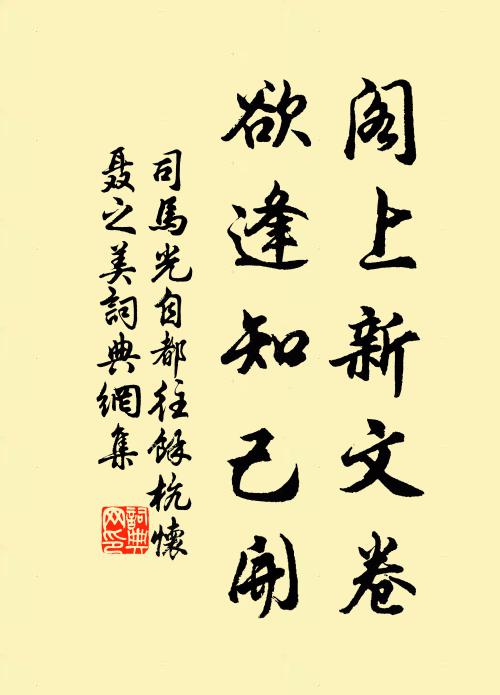 阁上新文卷
欲逢知己开
司馬光自都往餘杭懷
聂之美詞典網集
詞典
网印